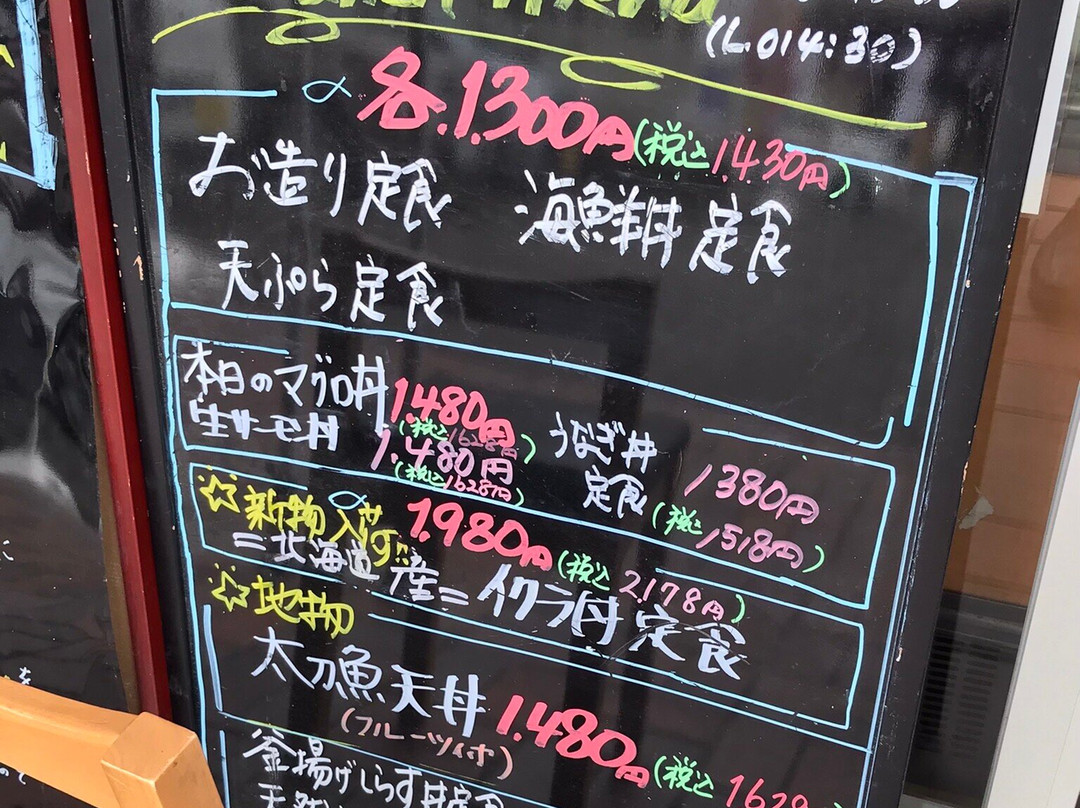 (L.O14:30)
各.1.300円(税込1.430円)
お造り定食 海鮮丼定食
天ぷら定食
本日のマグロ丼 1.480円
(税込1628円)
生サーモン丼 1.480円
(税込1628円)
うなぎ丼
定食 1380円
(税込1518円)
☆新物入荷!! 1.980円(税込2178円)
=北海道産=イクラ丼定食
☆地物
太刀魚天丼 1.480円(税込
(フルーツ付)
釜揚げしらす丼定食